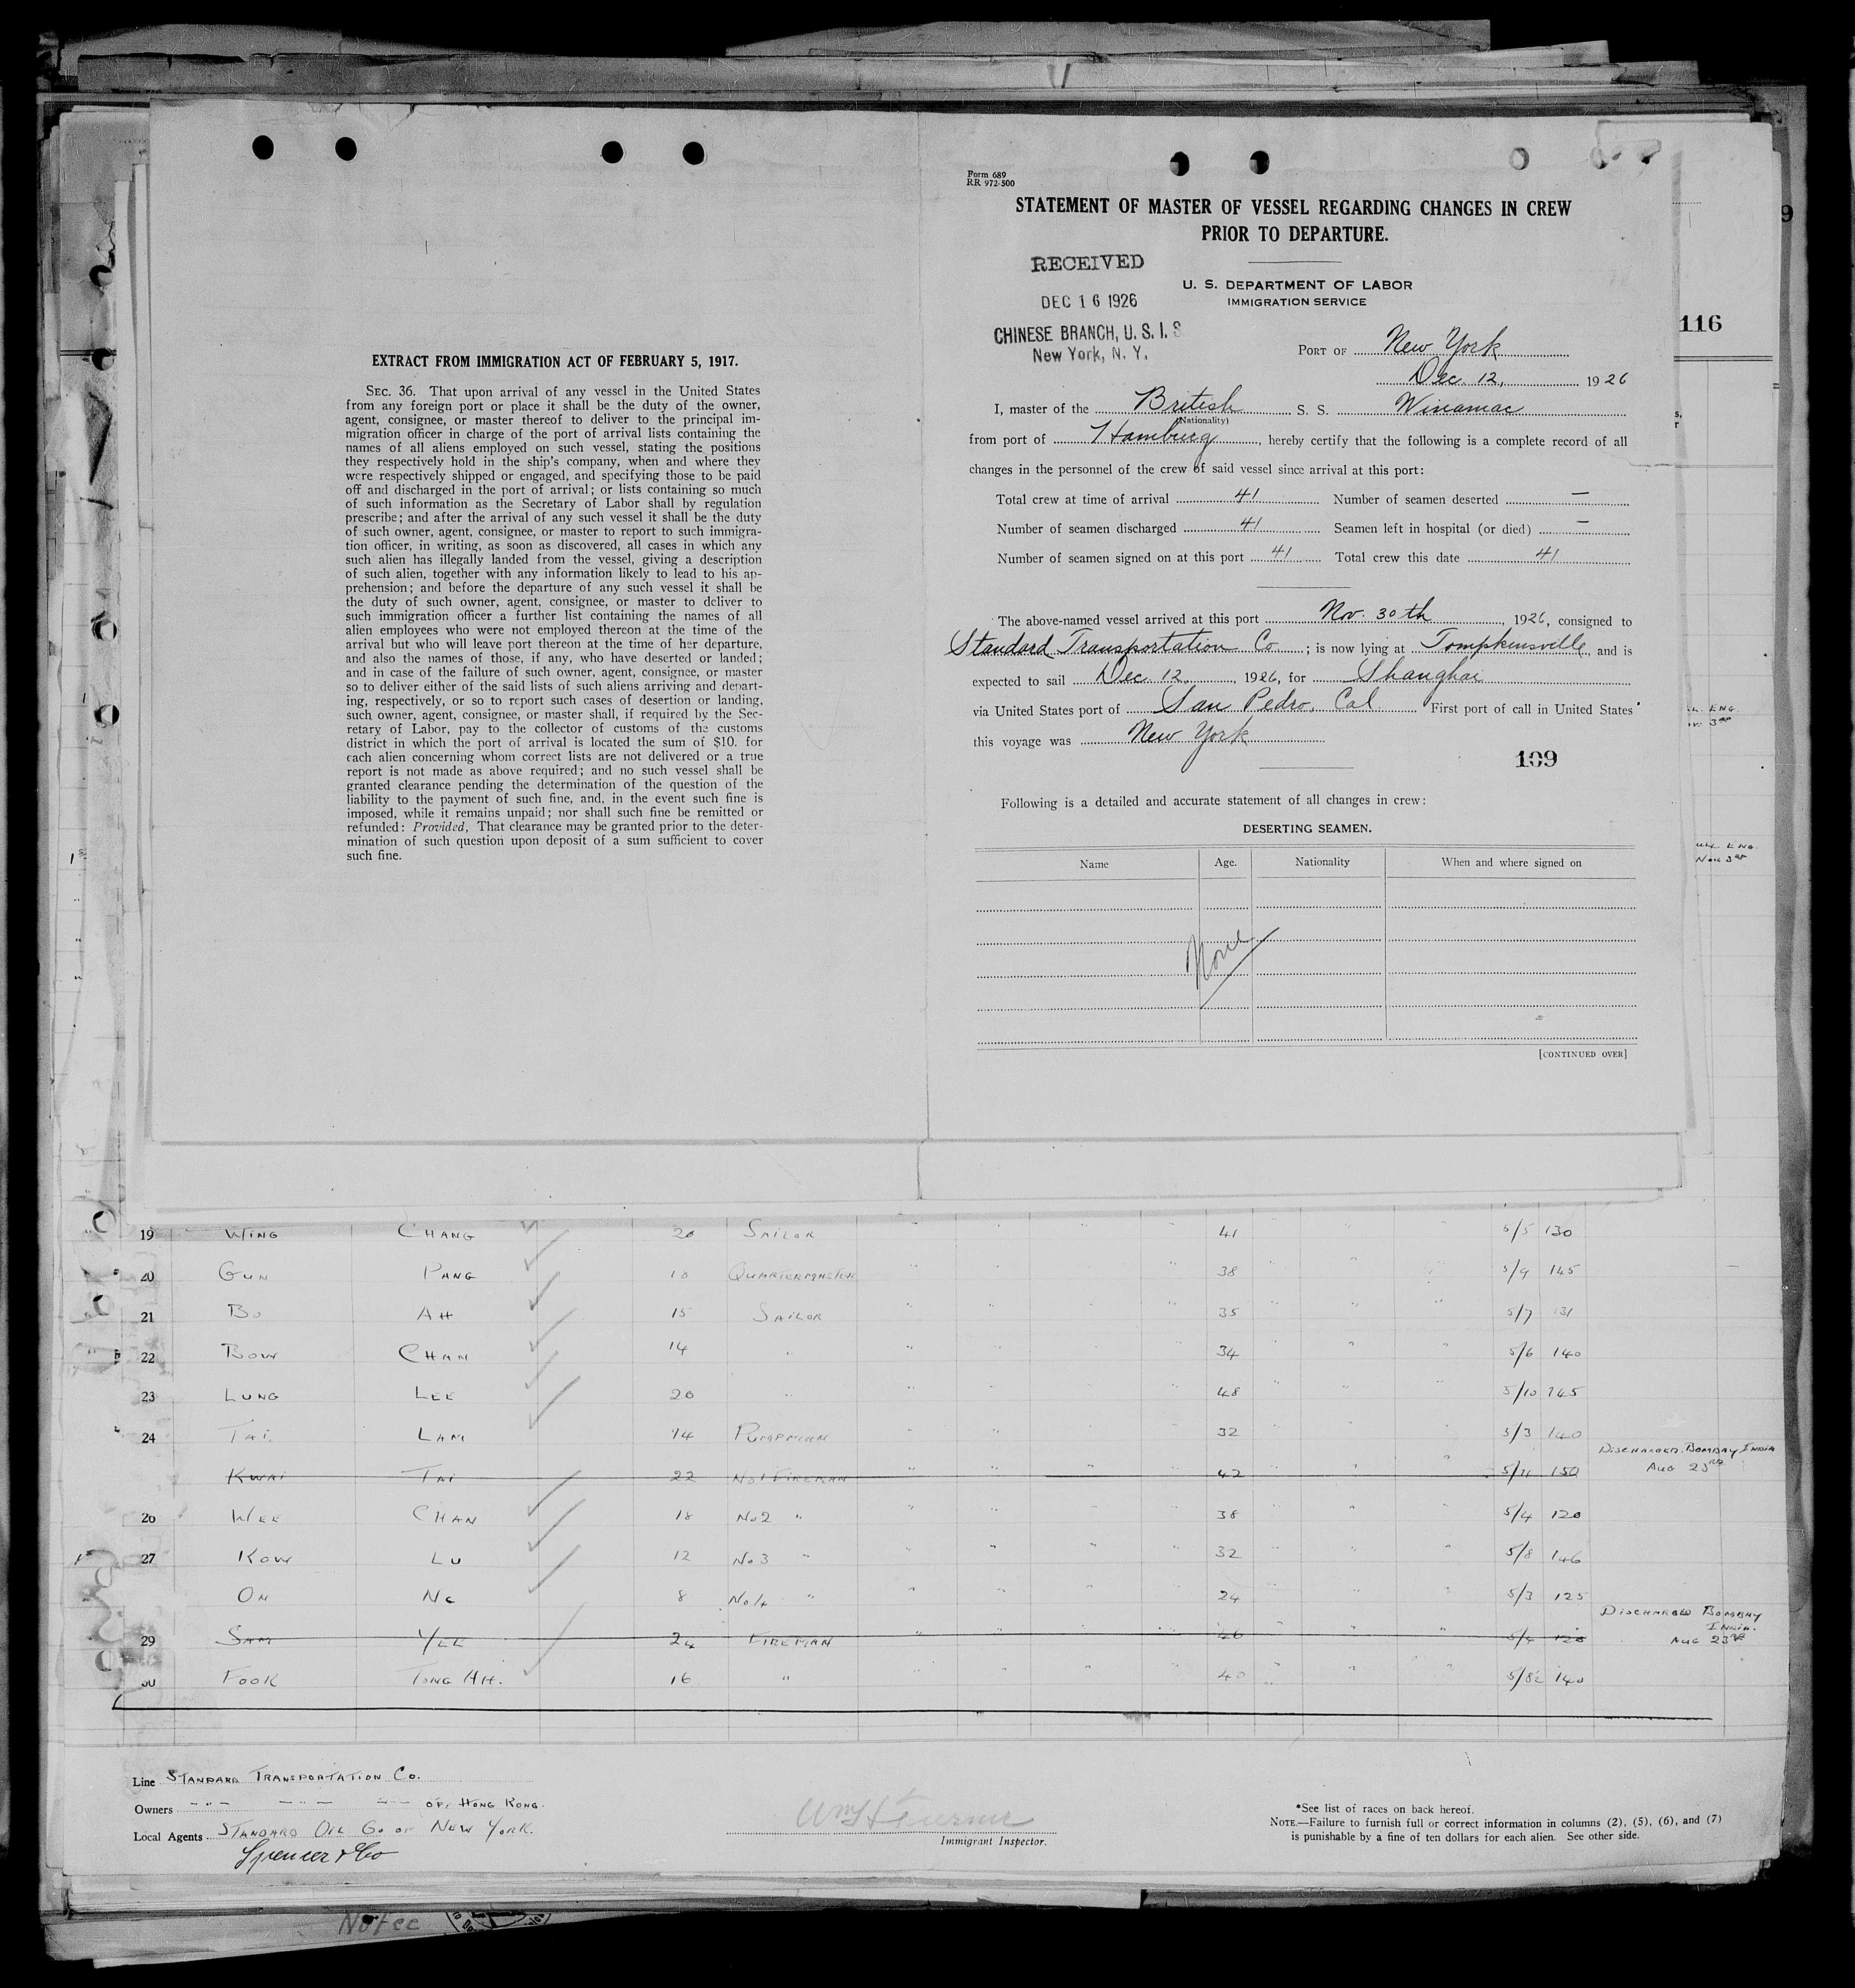 EXTRACT FROM IMMIGRATION ACT OF FEBRUARY 5, 1917.
SEC. 36. That upon arrival of any vessel in the United States
from any foreign port or place it shall be the duty of the owner,
agent, consignee, or master thereof to deliver to the principal im-
migration officer in charge of the port of arrival lists containing the
names of all aliens employed on such vessel, stating the positions
they respectively hold in the ship's company, when and where they
were respectively shipped or engaged, and specifying those to be paid
off and discharged in the port of arrival; or lists containing so much
of such information as the Secretary of Labor shall by regulation
prescribe; and after the arrival of any such vessel it shall be the duty
of such owner, agent, consignee, or master to report to such immigra-
tion officer, in writing, as soon as discovered, all cases in which any
such alien has illegally landed from the vessel, giving a description
of such alien, together with any information likely to lead to his ap-
prehension; and before the departure of any such vessel it shall be
the duty of such owner, agent, consignee, or master to deliver to
such immigration officer a further list containing the names of all
alien employees who were not employed thereon at the time of the
arrival but who will leave port thereon at the time of her departure,
and also the names of those, if any, who have deserted or landed;
and in case of the failure of such owner, agent, consignee, or master
so to deliver either of the said lists of such aliens arriving and depart-
ing, respectively, or so to report such cases of desertion or landing,
such owner, agent, consignee, or master shall, if required by the Sec-
retary of Labor, pay to the collector of customs of the customs
district in which the port of arrival is located the sum of $10. for
each alien concerning whom correct lists are not delivered or a true
report is not made as above required; and no such vessel shall be
granted clearance pending the determination of the question of the
liability to the payment of such fine, and, in the event such fine is
imposed, while it remains unpaid; nor shall such fine be remitted or
refunded: Provided, That clearance may be granted prior to the deter-
mination of such question upon deposit of a sum sufficient to cover
such fine.
Form 689
RR 972-500
STATEMENT OF MASTER OF VESSEL REGARDING CHANGES IN CREW
PRIOR TO DEPARTURE.
RECEIVED
DEC 16 1926
CHINESE BRANCH, U. S. I. S
New York, N. Y.
U. S. DEPARTMENT OF LABOR
IMMIGRATION SERVICE
PORT OF New York
Dec. 12, 1926
I, master of the British S. S. Winamac
(Nationality)
from port of Hamburg, hereby certify that the following is a complete record of all
changes in the personnel of the crew of said vessel since arrival at this port:
Total crew at time of arrival 41 Number of seamen deserted —
Number of seamen discharged 41 Seamen left in hospital (or died) —
Number of seamen signed on at this port 41 Total crew this date 41
The above-named vessel arrived at this port Nov. 30th, 1926, consigned to
Standard Transportation Co; is now lying at Tompkinsville, and is
expected to sail Dec. 12, 1926, for Shanghai
via United States port of San Pedro, Cal First port of call in United States
this voyage was New York
109
Following is a detailed and accurate statement of all changes in crew:
DESERTING SEAMEN.
Name Age. Nationality When and where signed on
None
[CONTINUED OVER]
116
19 WING CHANG 20 SAILOR " " " " 41 " " " 5/5 130
20 GUN PANG 18 QUARTERMASTER " " " " 38 " " " 5/9 145
21 BO AH 15 SAILOR " " " " 35 " " " 5/7 131
22 BOW CHAN 14 " " " " " 34 " " " 5/6 140
23 LUNG LEE 20 " " " " " 48 " " " 5/10 145
24 TAI LAM 14 PUMPMAN " " " " 32 " " " 5/3 140
KWAI TAI 22 NO1 FIREMAN " " " " 42 " " " 5/11 150 DISCHARGED BOMBAY INDIA
AUG 23RD
26 WEE CHAN 18 NO2 " " " " " 38 " " " 5/4 120
27 KOW LU 12 NO3 " " " " " 32 " " " 5/8 146
ON NG 8 NO4 " " " " " 24 " " " 5/3 125
29 SAM YEE 24 FIREMAN " " " " 46 " " " 5/4 128 DISCHARGED BOMBAY
INDIA.
AUG 23RD
30 FOOK TONG AH. 16 " " " " " 40 " " " 5/8½ 140
Line STANDARD TRANSPORTATION CO.
Owners " " " OF, HONG KONG.
Local Agents STANDARD OIL CO OF NEW YORK.
Spencer & Co
Immigrant Inspector.
*See list of races on back hereof.
NOTE.—Failure to furnish full or correct information in columns (2), (5), (6), and (7)
is punishable by a fine of ten dollars for each alien. See other side.